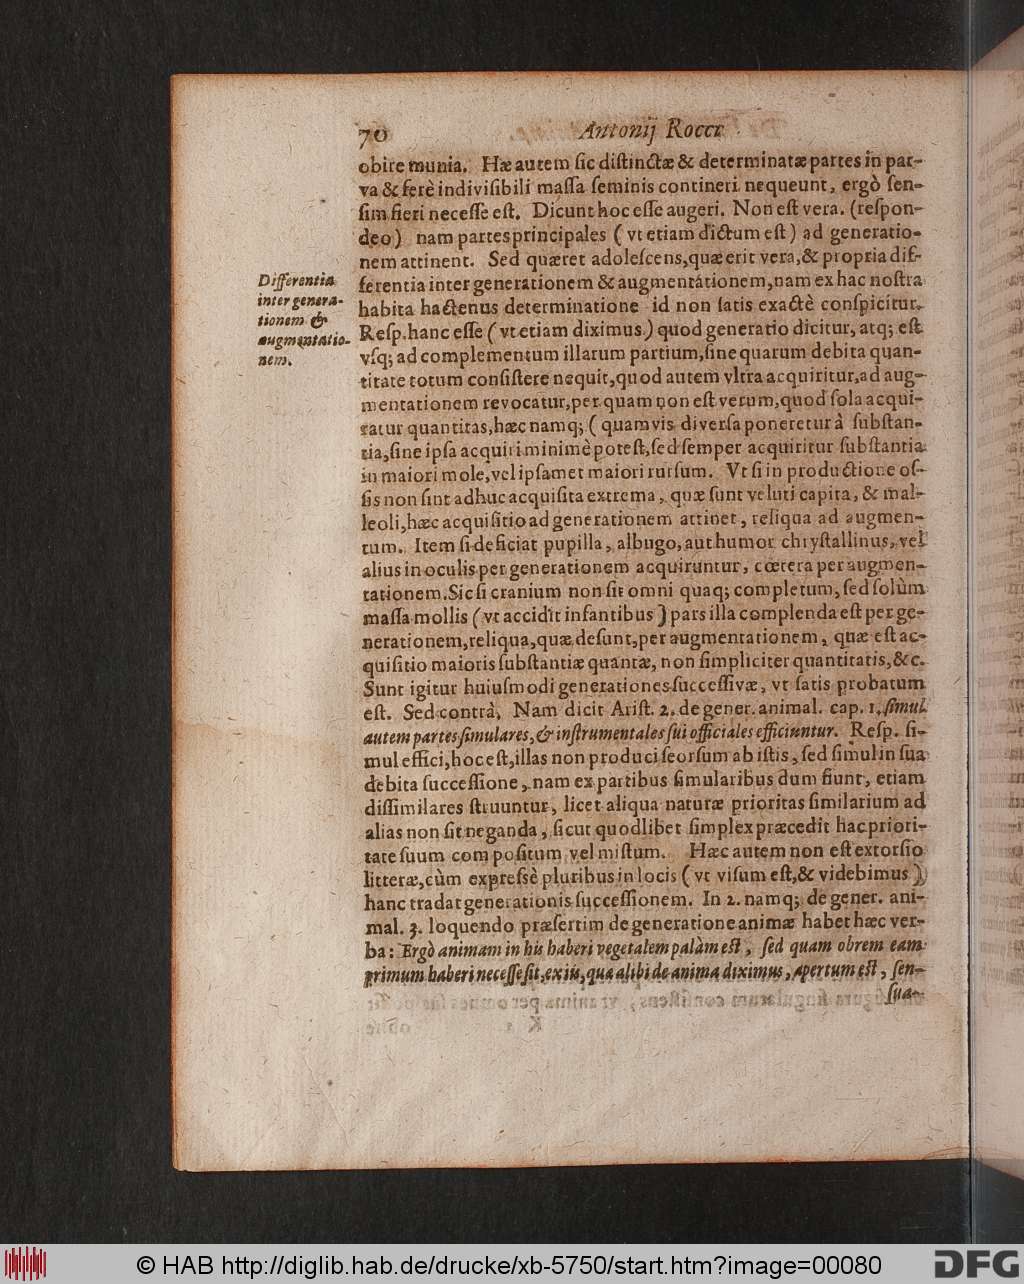 70 Antonij Roccæ
obire munia. Hæ autem ſic diſtinctæ & determinatæ partes in par-
va & ferè indiviſibili maſſa ſeminis contineri nequeunt, ergò ſen-
ſim fieri neceſſe eſt. Dicunt hoc eſſe augeri. Non eſt vera. (reſpon-
deo) nam partes principales ( vt etiam dictum eſt) ad generatio-
nem attinent. Sed quæret adoleſcens, quæ erit vera, & propria dif-
ferentia inter generationem & augmentationem, nam ex hac noſtra
habita hactenus determinatione id non ſatis exactè conſpicitur.
Reſp. hanc eſſe ( vt etiam diximus) quod generatio dicitur, atq; eſt
vſq; ad complementum illarum partium, ſine quarum debita quan-
titate totum conſiſtere nequit, quod autem vltra acquiritur, ad aug-
mentationem revocatur, per quam non eſt verum, quod ſola acqui-
ratur quantitas, hæc namq; ( quamvis diverſa poneretur à ſubſtan-
tia, ſine ipſa acquiri minimè poteſt, ſed ſemper acquiritur ſubſtantia
in maiori mole, vel ipſamet maiori rurſum. Vt ſi in productione oſ-
ſis non ſint adhuc acquiſita extrema, quæ ſunt veluti capita, & mal-
leoli, hæc acquiſitio ad generationem attinet, reliqua ad augmen-
tum. Item ſi deficiat pupilla, albugo, aut humor chryſtallinus, vel
alius in oculis per generationem acquiruntur, cœtera per augmen-
tationem. Sic ſi cranium non ſit omni quaq; completum, ſed ſolùm
maſſa mollis ( vt accidit infantibus ) pars illa complenda eſt per ge-
nerationem, reliqua, quæ deſunt, per augmentationem, quæ eſt ac-
quiſitio maioris ſubſtantiæ quantæ, non ſimpliciter quantitatis, &c.
Sunt igitur huiuſmodi generationes ſucceſſivæ, vt ſatis probatum
eſt. Sed contrà, Nam dicit Ariſt. 2. de gener. animal. cap. 1. ſimul
autem partes ſimulares, & inſtrumentales ſui officiales efficiuntur. Reſp. ſi-
mul effici, hoc eſt, illas non produci ſeorſum ab iſtis, ſed ſimul in ſua
debita ſucceſſione, nam ex partibus ſimularibus dum fiunt, etiam
diſſimilares ſtruuntur, licet aliqua naturæ prioritas ſimilarium ad
alias non ſit neganda, ſicut quodlibet ſimplex præcedit hac priori-
tate ſuum compoſitum vel miſtum. Hæc autem non eſt extorſio
litteræ, cùm expreſsè pluribus in locis ( vt viſum eſt, & videbimus )
hanc tradat generationis ſucceſſionem. In 2. namq; de gener. ani-
mal. 3. loquendo præſertim de generatione animæ habet hæc ver-
ba: Ergò animam in his haberi vegetalem palàm eſt, ſed quam obrem eam
primum haberi neceſſe ſit, ex iis, qua alibi de anima diximus, apertum eſt, ſen-
ſua-
Differentia
inter genera-
tionem &
augmentatio-
nem.
© HAB http://diglib.hab.de/drucke/xb-5750/start.htm?image=00080
DFG